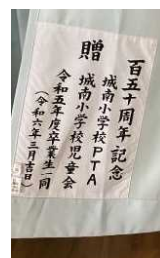 百五十周年記念
贈
城南小学校PTA
城南小学校児童会
令和五年度卒業生一同
(令和六年三月吉日)